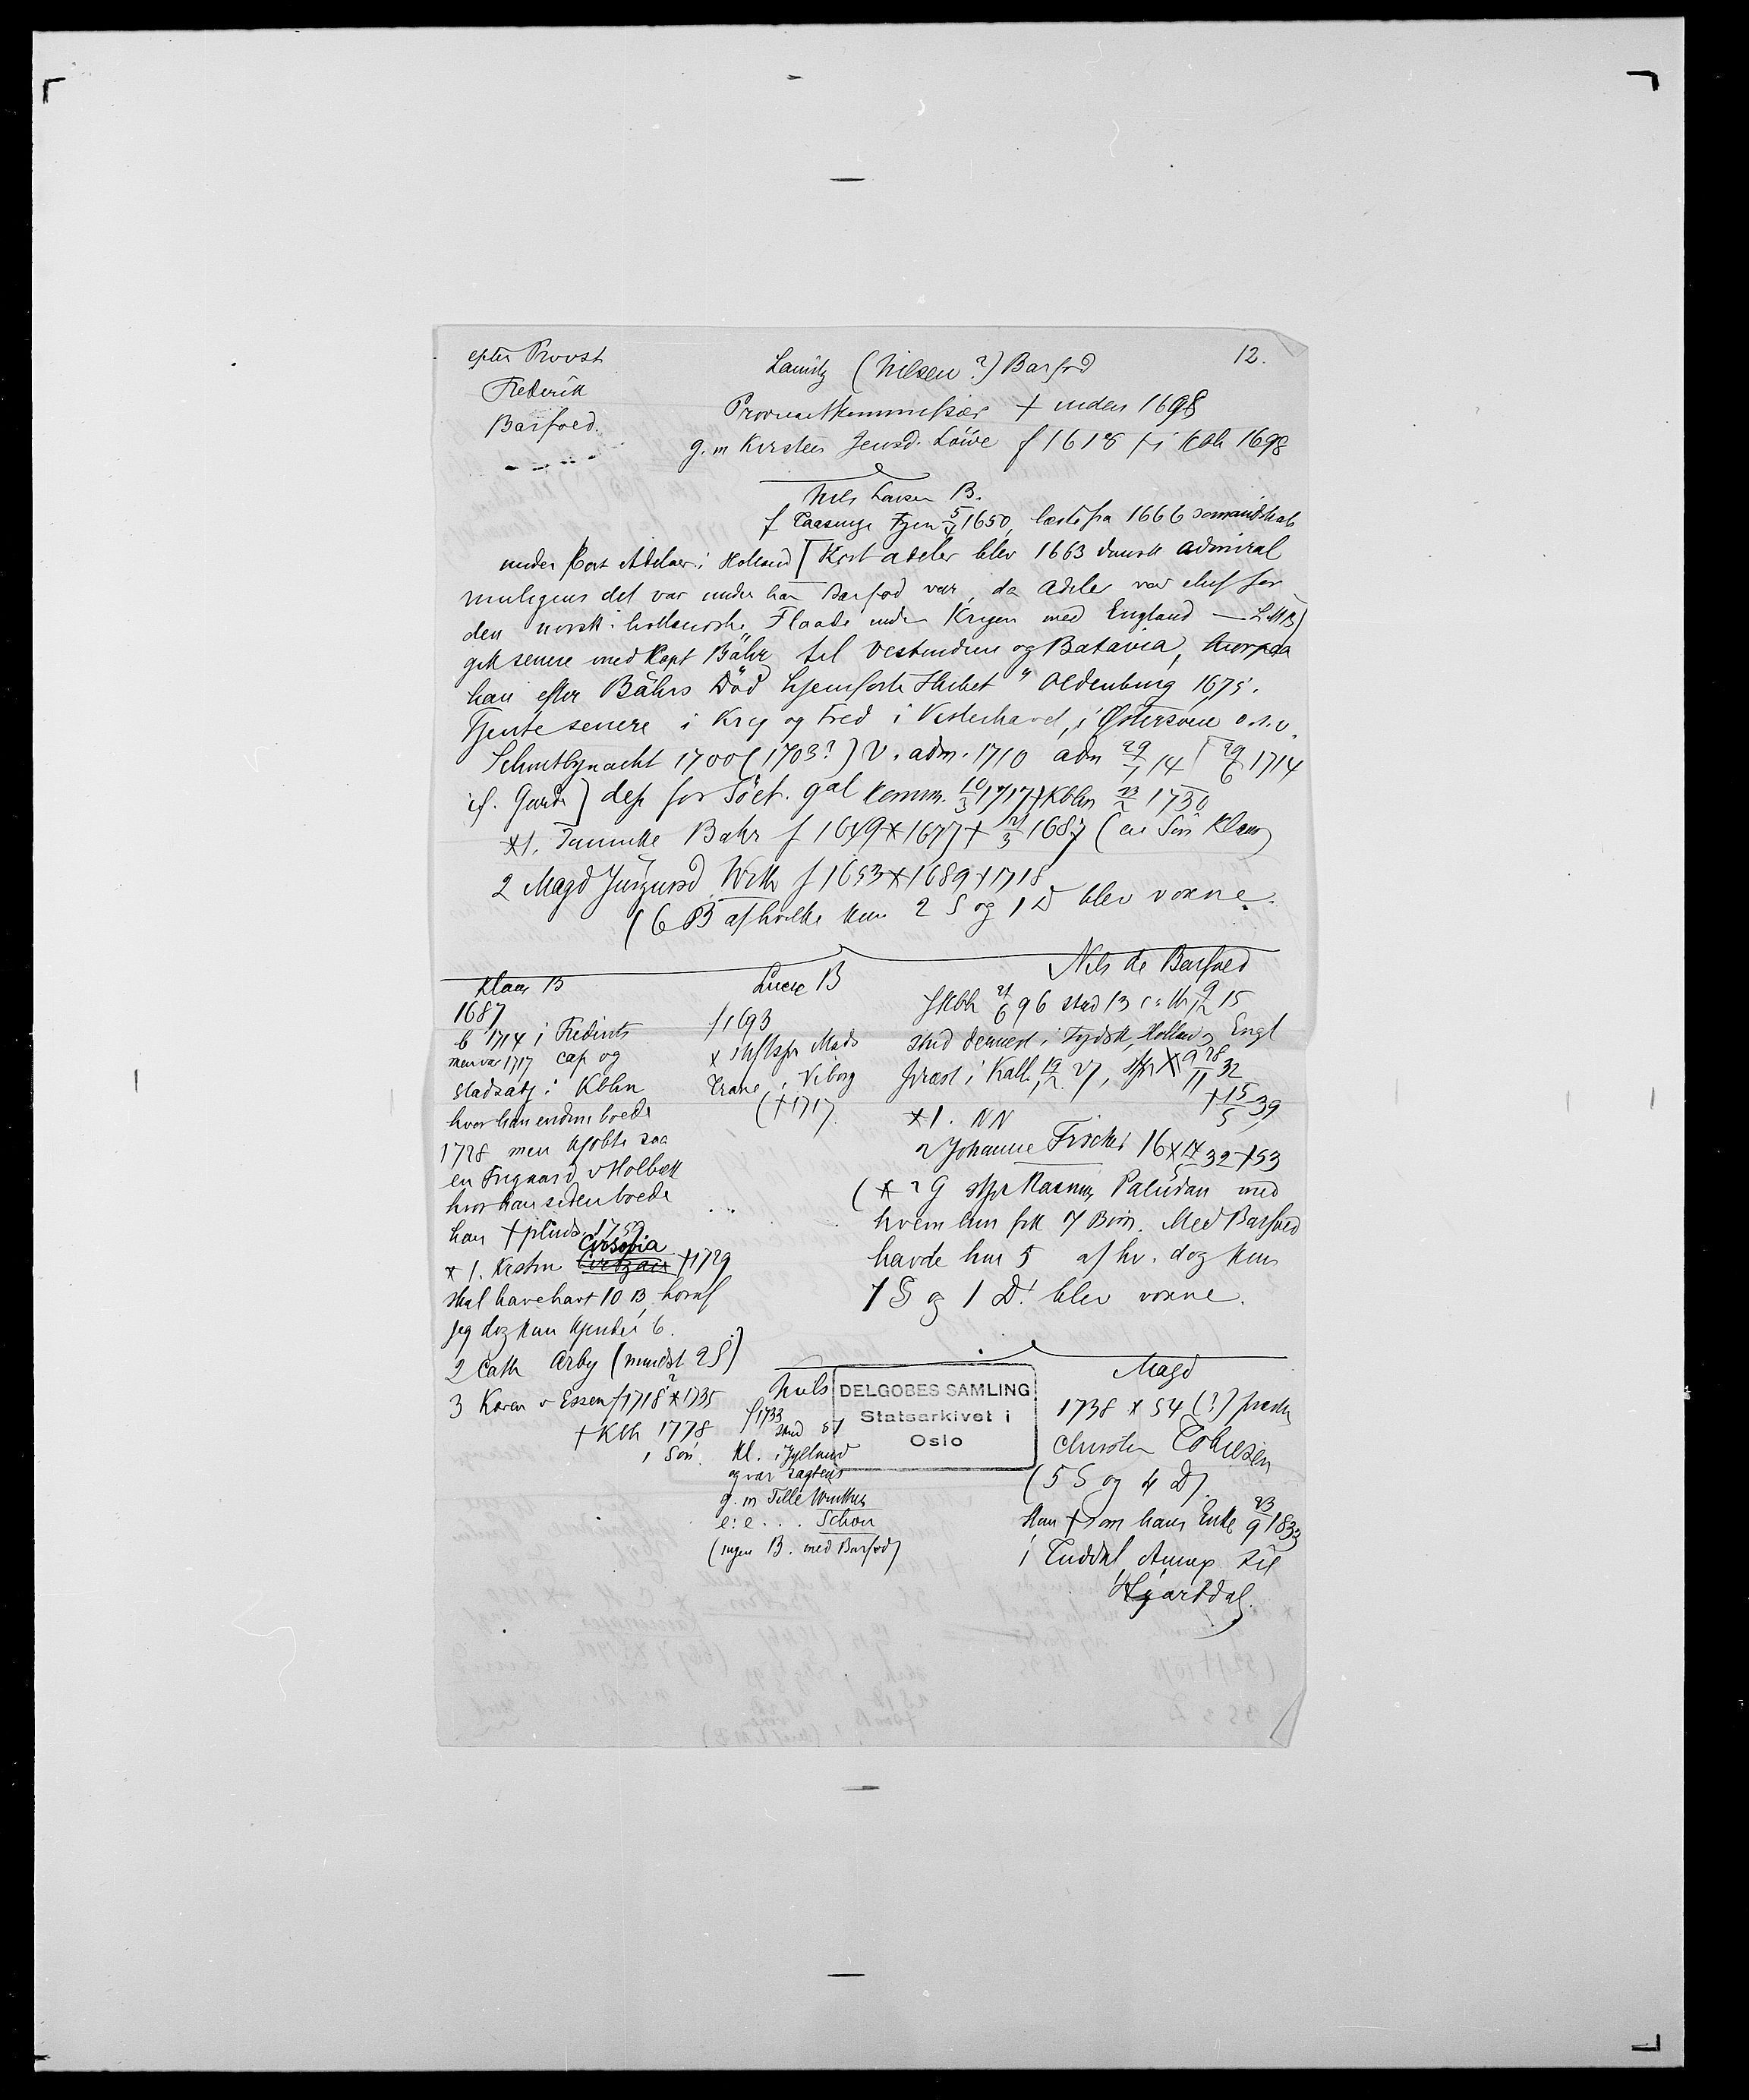 efter Provst
Frederik
Barfoed.
12.
Lauritz (Nilsen?) Barfod
Proviantkommissær † inden 1698
g. m Kirsten Jensd. Löwe f 1618 † i Kbh 1698
Nils Larsen B.
f Taasinge Fyen 5/4 1650, lærte fra 1666 sømandskab
under Cort Adelaer i Holland [Kort Adeler blev 1663 dansk Admiral
muligens det var under han Barfod var, da Adeler var chef for
den norsk-hollandske Flaade under Krigen med England — L.M.B)
gik senere med Kapt Bähr til Vestindien og Batavia, hvorpaa
han efter Bährs Död hjemførte Skibet "Oldenburg 1675.
Tjente senere i Krig og Fred i Vesterhavet, i Østersøen o.s.v.
Schoutbynacht 1700 (1703?) V. adm. 1710 adm 29/1 14 [29/6 1714
if. Garde] dep for Söet. gal komm. 10/3 1717 † Kbhn 23/2 1730
*1. Bähr f 1649 * 1677 † 21/3 1687 (en Sön Klaus)
2 Magd Jürgensd With f 1653 * 1689 † 1718
(6 B af hvilke kun 2 S og 1 D blev voxne.
Klaus B
1687
b 1714 i Fredrits
men var 1717 cap og
stadsabj i Kbhn
hvor han endnu boede
1728 men kjøbte saa
en Frigaard v Holbæk
hvor han siden boede
han † pluds. 1759
* 1. Kirstn Crosovia † 1729
skal have havt 10 B, hvoraf
jeg dog kun kjender 6.
2 Cath Arby (mindst 2 S)
3 Karen v Essen f 1718? * 1735
† Kbh 1778
1 Sön.
Lucie B
f 1693
x stiftspr Mads
Trane i Viborg
(† 1717)
Nils de Barfoed
f Kbh 21/6 96 stud 13 c. th 9/12 15
stud dernest i Tydsk, Holland og Engl
præst i Kall. 19/12 27, 28/11 32
† 15/5 39
*1. NN
2 Johanne Fischer 16 x 17/5 32 † 53
(* 2 G stpr Rasmus Paludan med
hvem hun fik 7 Börn. Med Barfoed
havde hun 5 af hv. dog kun
1 S og 1 D. blev voxne.
Nuls
f 1733
stud 51
Kl. i Jylland
og var sagtens
g. m Tille Winther
e: e ... Schou
(ingen B. med Barfod)
DELGOBES SAMLING
Statsarkivet i
Oslo
Magd
1738 x 54 (?) prestn
Christen Cohiesen
(5 S og 4 D).
Hun † som hans Enke 23/9 1833
i Tuddal Annex til
Hjartdal.